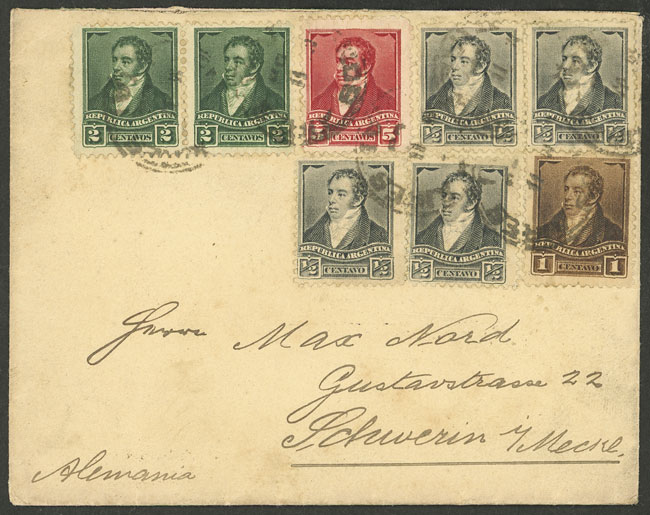 REPUBLICA ARGENTINA REPUBLICA ARGENTINA REPUBLICA ARGENTINA REPUBLICA ARGENTINA REPUBLICA ARGENTINA
2 CENTAVOS 2 2 CENTAVOS 2 5 CENTAVOS 5 1/2 CENTAVO 1/2 1/2 CENTAVO 1/2
REPUBLICA ARGENTINA REPUBLICA ARGENTINA REPUBLICA ARGENTINA
1/2 CENTAVO 1/2 1/2 CENTAVO 1/2 1 CENTAVO 1
Herrn Max Nord
Gustavstrasse 22
Schwerin i/Meckl.
Alemania